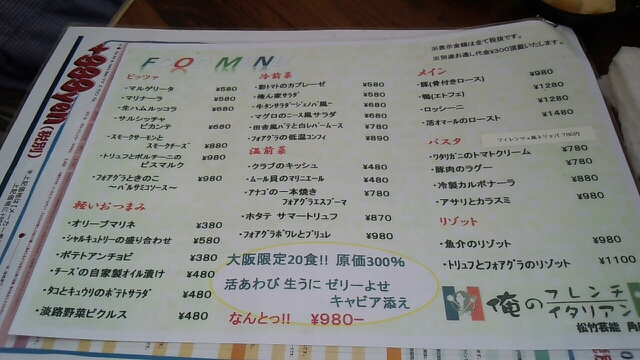 ※表示金額は全て税抜です。
※別途お通し代金¥300頂戴いたします。
ピッツァ
・マルゲリータ ¥580
・マリナーラ ¥580
・生ハムルッコラ ¥680
・サルシッチャ
ピカンテ ¥680
・スモークサーモンと
スモークチーズ ¥880
・トリュフとポルチーニの
ビスマルク ¥980
・フォアグラときのこ ¥980
～バルサミコソース～
軽いおつまみ
・オリーブマリネ ¥380
・シャルキュトリーの盛り合わせ ¥580
・ポテトアンチョビ ¥380
・チーズの自家製オイル漬け ¥480
・タコとキュウリのポテトサラダ ¥480
・淡路野菜ピクルス ¥480
冷前菜
・彩トマトのカプレーゼ ¥580
・俺ん家サラダ ¥580
・牛タンサラダージェノバ風ー ¥680
・マグロのニース風サラダ ¥680
・田舎風パテと白レバームース ¥780
・フォアグラの低温コンフィ ¥890
温前菜
・クラブのキッシュ ¥480
・ムール貝のマリニエール ¥480
・アナゴの一本焼き ¥780
フォアグラエスプーマ
・ホタテ サマートリュフ ¥870
・フォアグラポワレとブリュレ ¥980
大阪限定20食!! 原価300%
活あわび 生うに ゼリーよせ
キャビア添え
なんとっ!! ¥980-
メイン
・豚(骨付きロース) ¥980
・鴨(エトフェ) ¥1280
・ロッシーニ ¥1280
・活オマールのロースト ¥1480
フィレンツェ風トリッパ 780円
パスタ
・ワタリガニのトマトクリーム ¥780
・豚肉のラグー ¥780
・冷製カルボナーラ ¥880
・アサリとカラスミ ¥980
リゾット
・魚介のリゾット ¥980
・トリュフとフォアグラのリゾット ¥1100
俺のフレンチ
イタリアン
松竹芸能